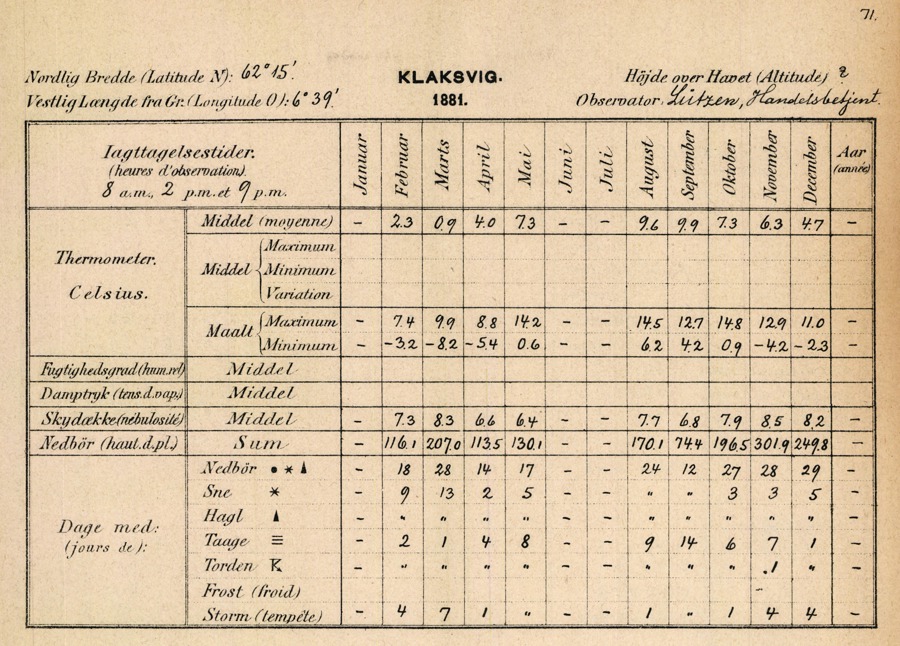 71.
Nordlig Bredde (Latitude N): 62° 15'. KLAKSVIG. Höjde over Havet (Altitude) ?
Vestlig Længde fra Gr. (Longitude O): 6° 39'. 1881. Observator Lützen, Handelsbetjent.
Iagttagelsestider. Januar Februar Marts April Mai Juni Juli August September Oktober November December Aar
(heures d'observation). (année)
8 a.m., 2 p.m. et 9 p.m.
Middel (moyenne) – 2.3 0.9 4.0 7.3 – – 9.6 9.9 7.3 6.3 4.7 –
Thermometer. Middel Maximum
Minimum
Celsius. Variation
Maalt Maximum – 7.4 9.9 8.8 14.2 – – 14.5 12.7 14.8 12.9 11.0 –
Minimum – -3.2 -8.2 -5.4 0.6 – – 6.2 4.2 0.9 -4.2 -2.3 –
Fugtighedsgrad (hum. rel) Middel
Damptryk (tens. d. vap.) Middel
Skydække (nébulosité) Middel – 7.3 8.3 6.6 6.4 – – 7.7 6.8 7.9 8.5 8.2 –
Nedbör (haut. d. pl.) Sum – 116.1 207.0 113.5 130.1 – – 170.1 74.4 196.5 301.9 249.8 –
Dage med: Nedbör – 18 28 14 17 – – 24 12 27 28 29 –
(jours de): Sne – 9 13 2 5 – – " " 3 3 5 –
Hagl – " " " " – – " " " " " –
Taage – 2 1 4 8 – – 9 14 6 7 1 –
Torden – " " " " – – " " " 1 " –
Frost (froid)
Storm (tempête) – 4 7 1 " – – 1 " 1 4 4 –